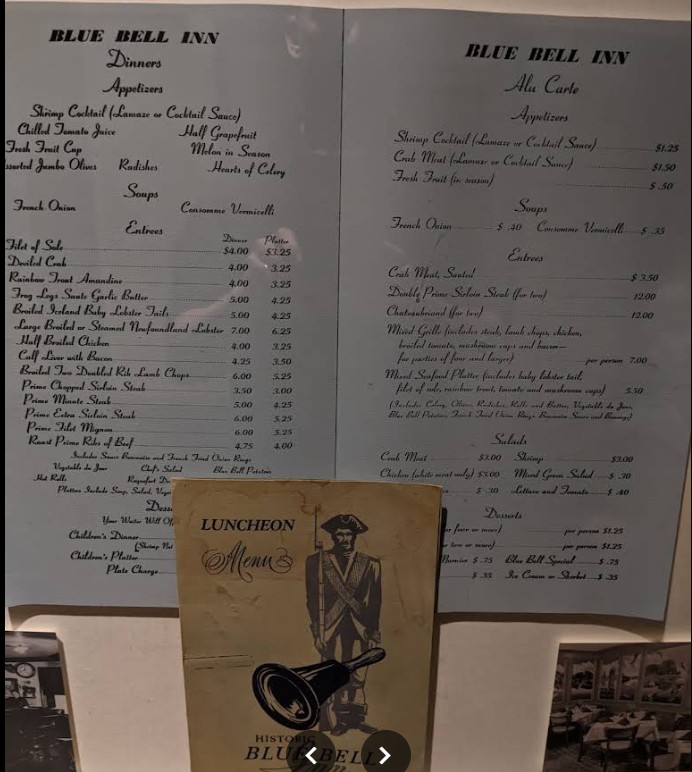 BLUE BELL INN
Dinners
Appetizers
Shrimp Cocktail (Lamaze or Cocktail Sauce)
Chilled Tomato Juice Half Grapefruit
Fresh Fruit Cup Melon in Season
Jumbo Olives Radishes Hearts of Celery
Soups
French Onion Consomme Vermicelli
Entrees
Dinner Platter
Filet of Sole $4.00 $3.25
Deviled Crab 4.00 3.25
Rainbow Trout Amandine 4.00 3.25
Frog Legs Saute Garlic Butter 5.00 4.25
Broiled Iceland Baby Lobster Tails 5.00 4.25
Large Broiled or Steamed Newfoundland Lobster 7.00 6.25
Half Broiled Chicken 4.00 3.25
Calf Liver with Bacon 4.25 3.50
Broiled Two Doubled Rib Lamb Chops 6.00 5.25
Prime Chopped Sirloin Steak 3.50 3.00
Prime Minute Steak 5.00 4.25
Prime Extra Sirloin Steak 6.00 5.25
Prime Filet Mignon 6.00 5.25
Roast Prime Ribs of Beef 4.75 4.00
Includes Sauce Bearnaise and French Fried Onion Rings
Vegetable du Jour Chef's Salad Blue Bell Potatoes
Hot Rolls Roquefort
Platters Include Soup, Salad,
Your Waiter Will
Children's Dinner
(Shrimp Not
Children's Platter
Plate Charge
BLUE BELL INN
Alu Carte
Appetizers
Shrimp Cocktail (Lamaze or Cocktail Sauce) $1.25
Crab Meat (Lamaze or Cocktail Sauce) $1.50
Fresh Fruit (in season) $ .50
Soups
French Onion $ .40 Consomme Vermicelli $ .35
Entrees
Crab Meat, Sauted $ 3.50
Double Prime Sirloin Steak (for two) 12.00
Chateaubriand (for two) 12.00
Mixed Grille (includes steak, lamb chops, chicken,
broiled tomato, mushroom caps and bacon—
for parties of four and larger) per person 7.00
Mixed Seafood Platter (includes baby lobster tail,
filet of sole, rainbow trout, tomato and mushroom caps) 5.50
(Includes Celery, Olives, Radishes, Rolls and Butter, Vegetable du Jour,
Blue Bell Potatoes, French Fried Onion Rings, Bearnaise Sauce and Beverage)
Salads
Crab Meat $3.00 Shrimp $3.00
Chicken (white meat only) $3.00 Mixed Green Salad $ .30
$ .30 Lettuce and Tomato $ .40
Desserts
or four or more) per person $1.25
or two or more) per person $1.25
$ .75 Blue Bell Special $ .75
$ .35 Ice Cream or Sherbet $ .35
LUNCHEON
Menu
HISTORIC
BLUE BELL
Inn